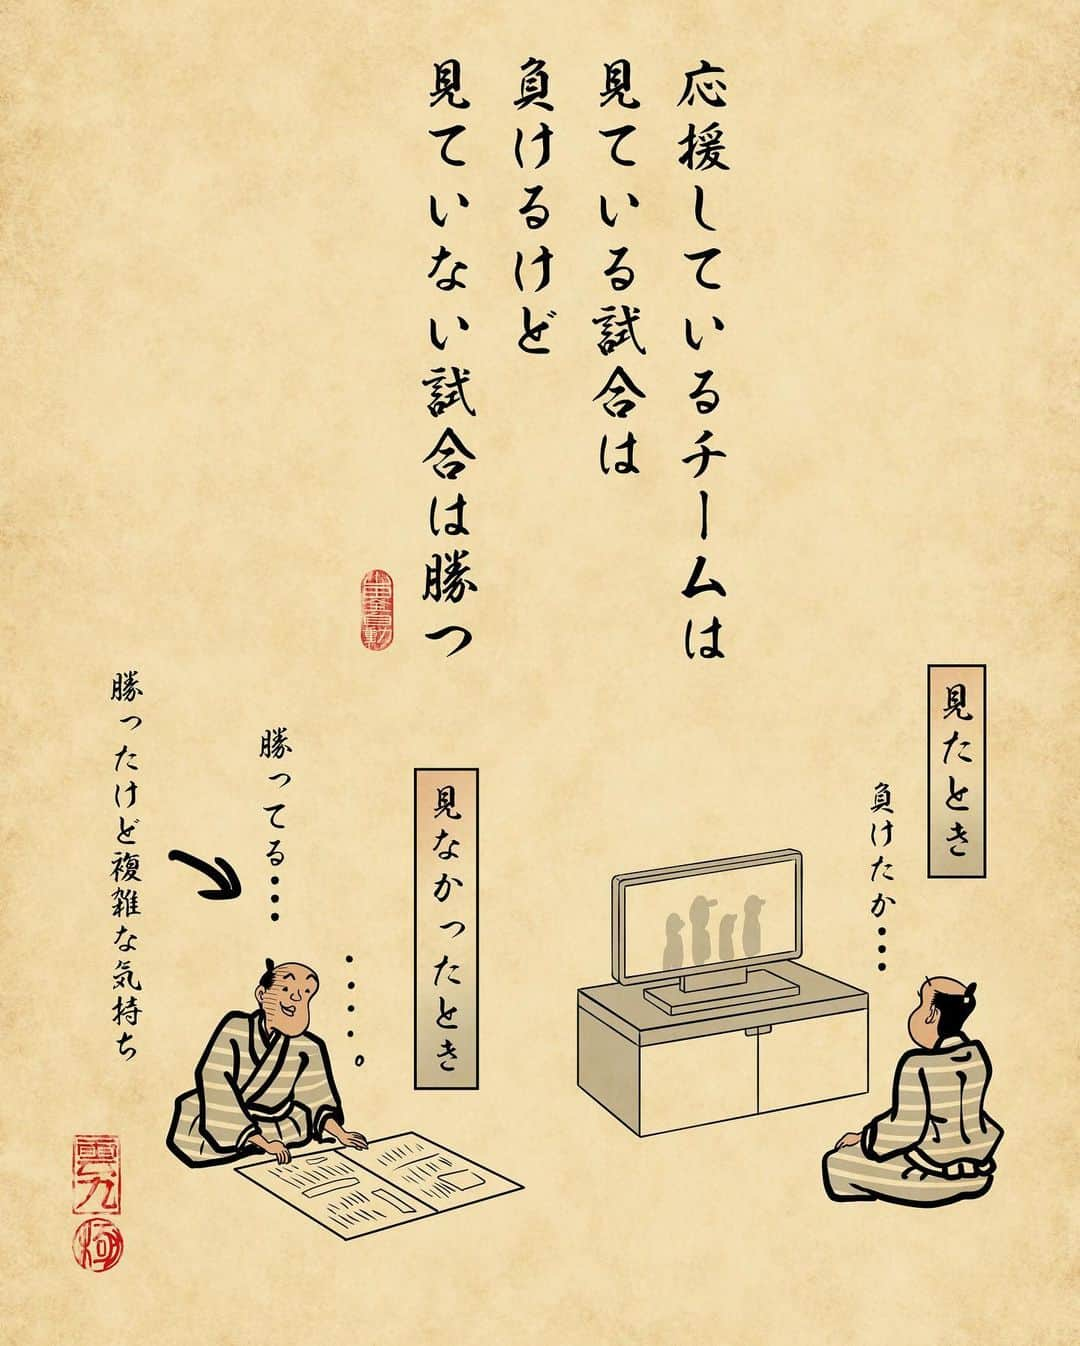 応援しているチームは
見ている試合は
負けるけど
見ていない試合は勝つ
見たとき
負けたか・・・
見なかったとき
・・・・。
勝ってる・・・
勝ったけど複雑な気持ち